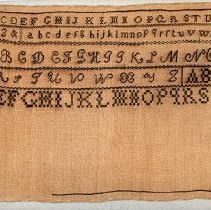 C D E F G H I J K L M N O P Q R S T U
Z & a b c d e f g h i j k l m n o p q r s t u v w
B C D E F G H I J K L M N O
S T U V W X Y Z A B
E F G H I J K L M N O P Q R S